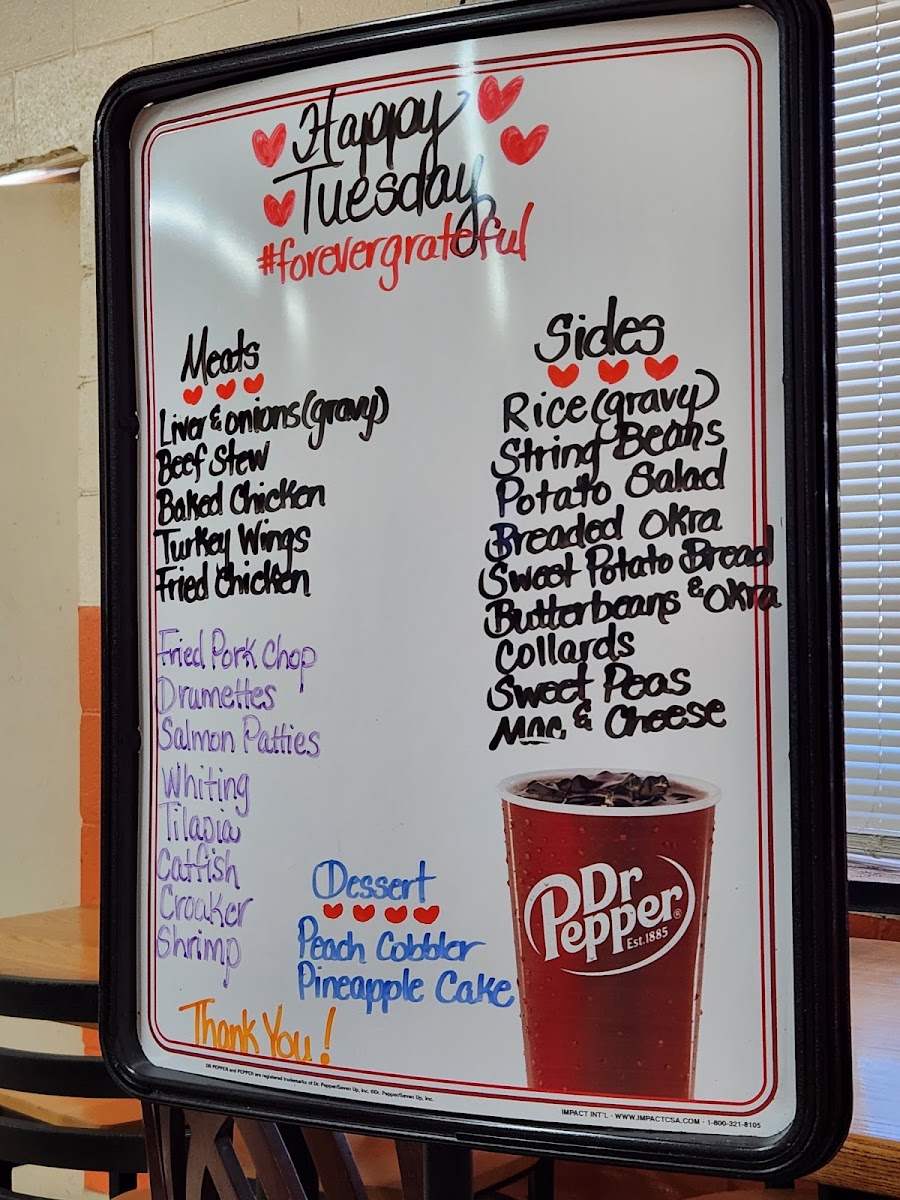 Happy
Tuesday
#forevergrateful
Meats
Liver & onions (gravy)
Beef Stew
Baked Chicken
Turkey Wings
Fried Chicken
Fried Pork Chop
Drumettes
Salmon Patties
Whiting
Tilapia
Catfish
Croaker
Shrimp
Sides
Rice (gravy)
String Beans
Potato Salad
Breaded Okra
Sweet Potato Bread
Butterbeans & Okra
Collards
Sweet Peas
Mac & Cheese
Dessert
Peach Cobbler
Pineapple Cake
Thank You!
Dr
Pepper®
Est.1885
DR PEPPER and PEPPER are registered trademarks of Dr. Pepper/Seven Up, Inc. ©Dr. Pepper/Seven Up, Inc.
IMPACT INT'L - WWW.IMPACTCSA.COM - 1-800-321-8105